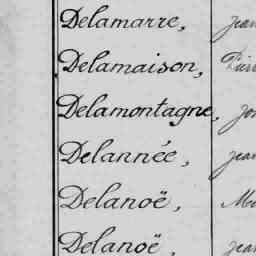 Delamarre, jean
Delamaison, Pierr
Delamontagne, jo
Delannée, jean
Delanoë, Ma
Delanoë, jean